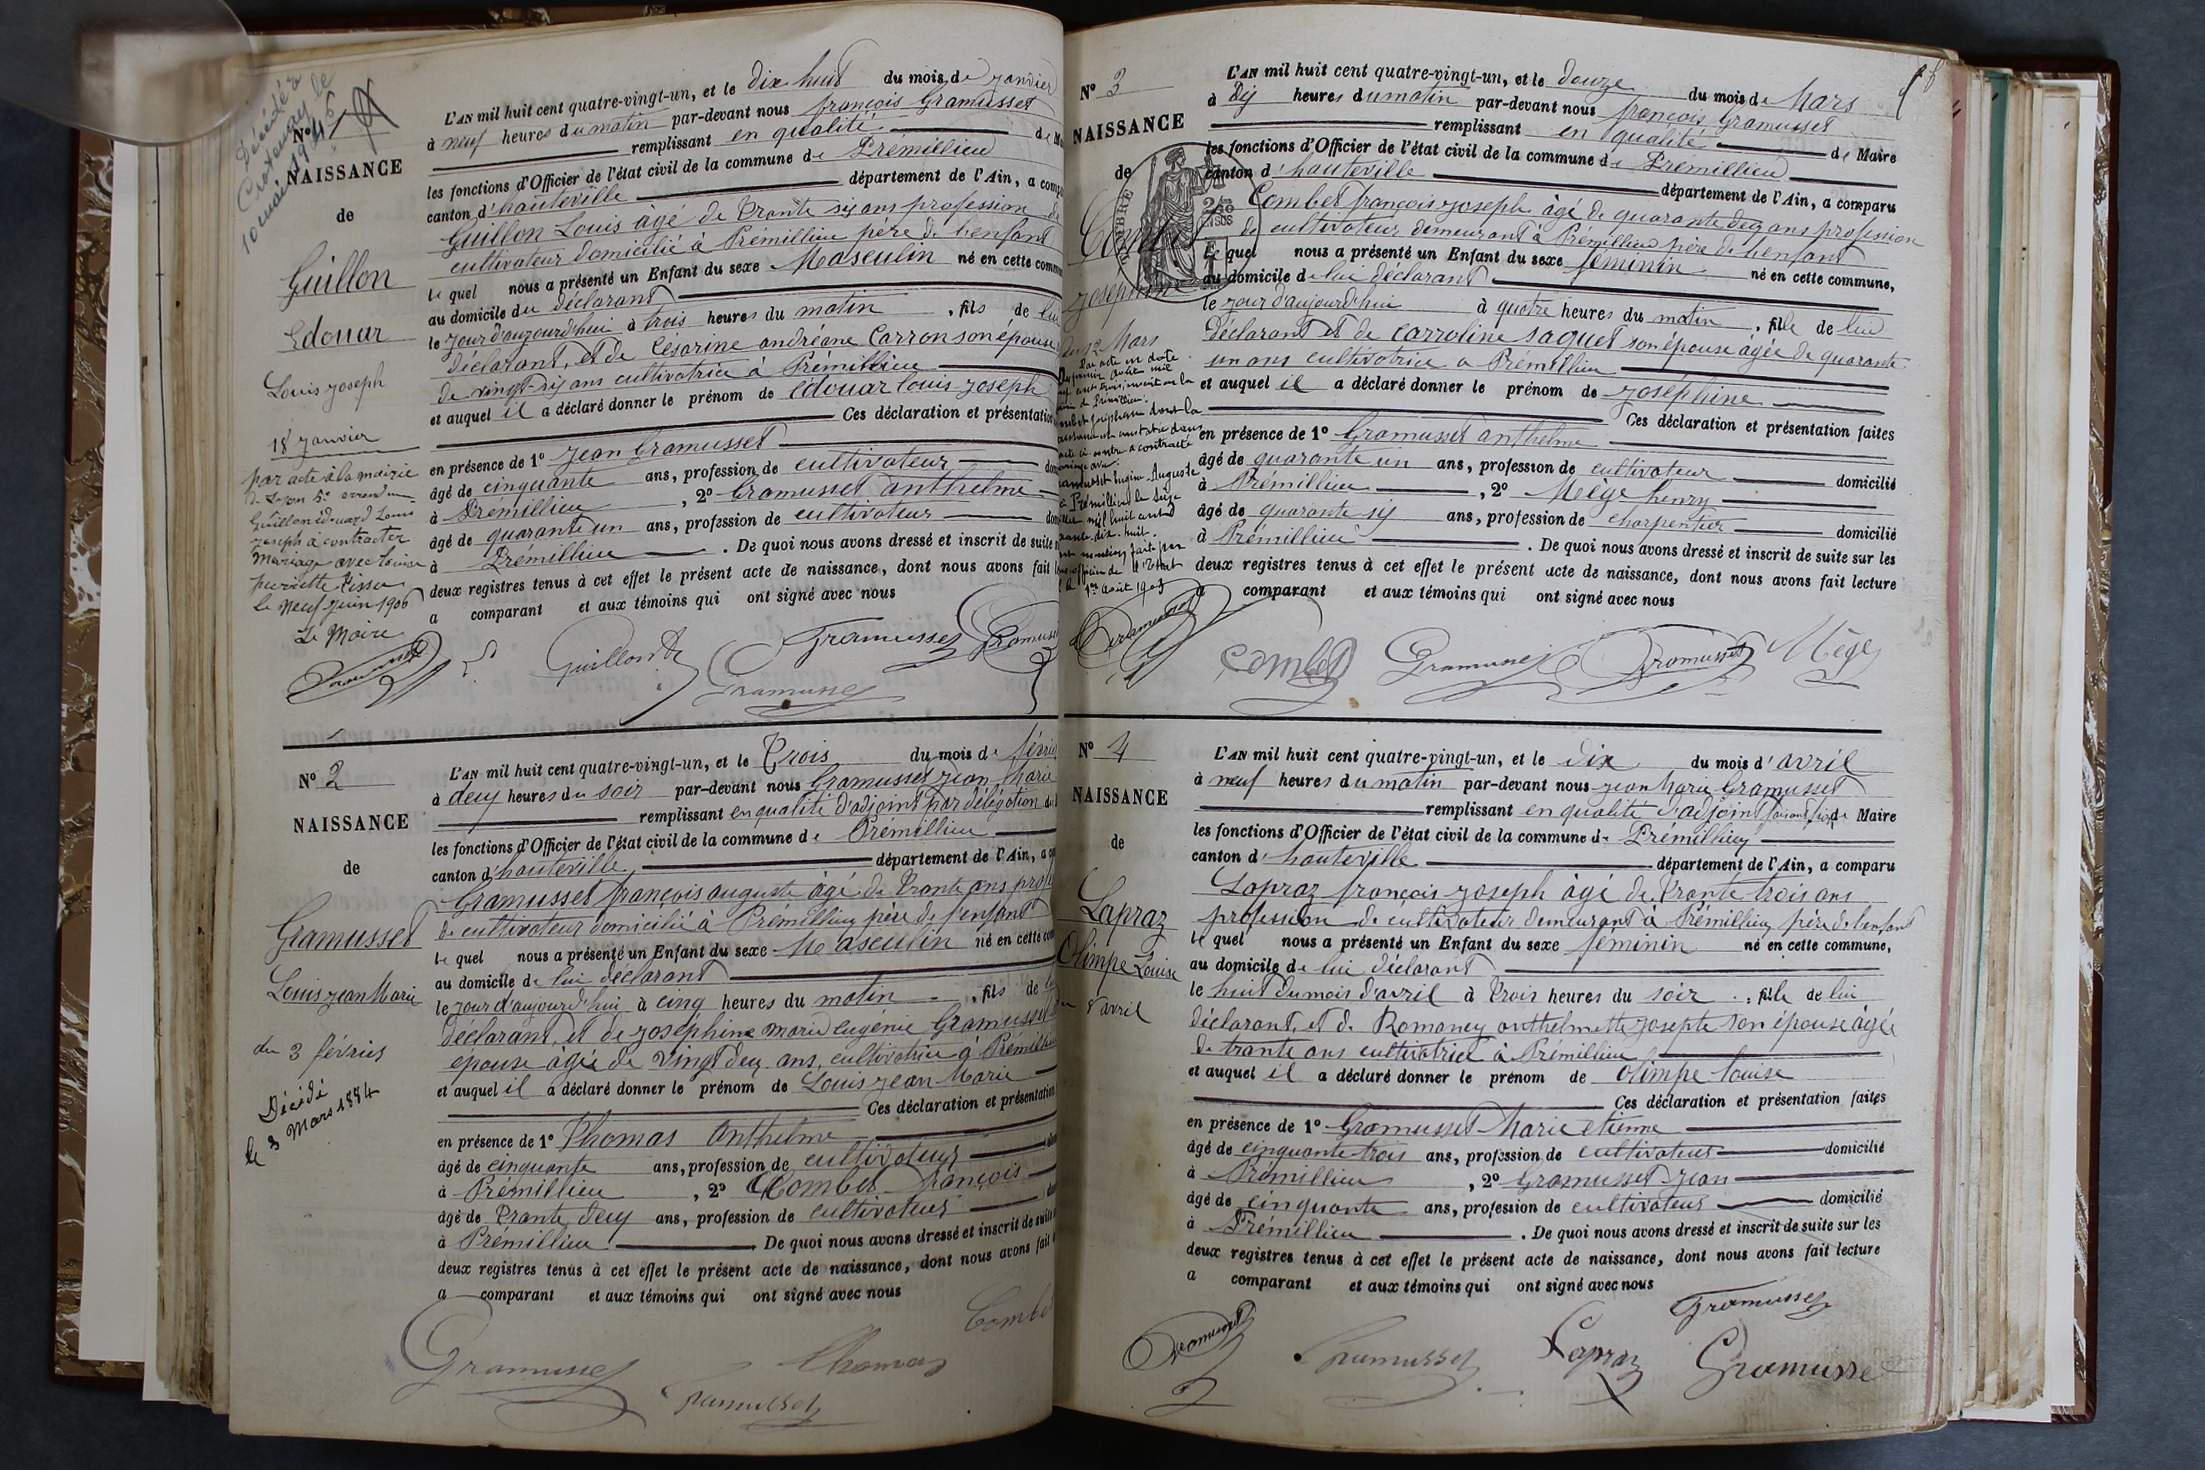 Décédé à
le
10 mars 1946
N° 1
NAISSANCE
de
Guillon
Edouar
Louis joseph
18 janvier
par acte à la mairie
de Lyon 5e arrond
Guillon édouard Louis
joseph a contracter
Mariage avec Louise
pierrette
le Neuf juin 1906
Le Maire
L'AN mil huit cent quatre-vingt-un, et le dix huit du mois de janvier
à neuf heures du matin par-devant nous françois Gramusset
remplissant en qualité de
les fonctions d'Officier de l'état civil de la commune de Prémillieu
canton d'hauteville département de l'Ain, a comp
Guillon Louis âgé de trante six ans profession de
cultivateur domicilié à Prémillieu père de l'enfant
le quel nous a présenté un Enfant du sexe Masculin né en cette comm
au domicile du déclarant
le jour d'aujourd'hui à trois heures du matin , fils de lui
déclarant, et de Cesarine andréane Carron son épouse
de vingt six ans cultivatrice à Prémillieu
et auquel il a déclaré donner le prénom de édouar Louis joseph
Ces déclaration et présentation
en présence de 1° jean Gramusset
âgé de cinquante ans, profession de cultivateur
à Prémillieu , 2° Gramusset anthelme
âgé de quarante un ans, profession de cultivateur
à Prémillieu . De quoi nous avons dressé et inscrit de suite
deux registres tenus à cet effet le présent acte de naissance, dont nous avons fait
a comparant et aux témoins qui ont signé avec nous
Guillon
Gramusset
Gramusset
N° 2
NAISSANCE
de
Gramusset
Louis jean Marie
du 3 février
Décédé
le 3 Mars 1884
L'AN mil huit cent quatre-vingt-un, et le trois du mois de février
à deux heures du soir par-devant nous Gramusset jean Marie
remplissant en qualité d'adjoint par délégation
les fonctions d'Officier de l'état civil de la commune de Prémillieu
canton d'hauteville département de l'Ain, a
Gramusset françois auguste âgé de trante ans prof
de cultivateur domicilié à Prémillieu père de l'enfant
le quel nous a présenté un Enfant du sexe Masculin né en cette com
au domicile de lui déclarant
le jour d'aujourd'hui à cinq heures du matin , fils de
déclarant, et de joséphine marie eugénie Gramusset
épouse âgée de vingt deux ans, cultivatrice à Prémillieu
et auquel il a déclaré donner le prénom de Louis jean Marie
Ces déclaration et présentation
en présence de 1° Thomas anthelme
âgé de cinquante ans, profession de cultivateur
à Prémillieu , 2° Combet françois
âgé de trante deux ans, profession de cultivateur
à Prémillieu De quoi nous avons dressé et inscrit de suite
deux registres tenus à cet effet le présent acte de naissance, dont nous avons fait
a comparant et aux témoins qui ont signé avec nous
Combet
Gramusset
Thomas
Gramusset
N° 3
NAISSANCE
de
Joséphine
Mars
L'AN mil huit cent quatre-vingt-un, et le douze du mois de Mars
à dix heures du matin par-devant nous françois Gramusset
remplissant en qualité de Maire
les fonctions d'Officier de l'état civil de la commune de Prémillieu
canton d'hauteville département de l'Ain, a comparu
Combet françois joseph âgé de quarante deux ans profession
de cultivateur demeurant à Prémillieu père de l'enfant
le quel nous a présenté un Enfant du sexe féminin né en cette commune,
au domicile de lui déclarant
le jour d'aujourd'hui à quatre heures du matin , fille de lui
déclarant et de carroline saquet son épouse âgée de quarante
un ans cultivatrice a Prémillieu
et auquel il a déclaré donner le prénom de joséphine
Ces déclaration et présentation faites
en présence de 1° Gramusset anthelme
âgé de quarante un ans, profession de cultivateur domicilié
à Prémillieu , 2° Mège henry
âgé de quarante six ans, profession de charpentier domicilié
à Prémillieu . De quoi nous avons dressé et inscrit de suite sur les
deux registres tenus à cet effet le présent acte de naissance, dont nous avons fait lecture
a comparant et aux témoins qui ont signé avec nous
Combet
Gramusset
Gramusset
Mège
N° 4
NAISSANCE
de
Lapraz
Olimpe Louise
8 avril
L'AN mil huit cent quatre-vingt-un, et le dix du mois d'avril
à neuf heures du matin par-devant nous jean Marie Gramusset
remplissant en qualité d'adjoint faisant de Maire
les fonctions d'Officier de l'état civil de la commune de Prémillieu
canton d'hauteville département de l'Ain, a comparu
Lapraz françois joseph âgé de trante trois ans
profession de cultivateur demeurant à Prémillieu père de l'enfant
le quel nous a présenté un Enfant du sexe féminin né en cette commune,
au domicile de lui déclarant
le huit du mois d'avril à trois heures du soir , fille de lui
déclarant, et de Romaney anthelmette josephte son épouse âgée
de trante ans cultivatrice à Prémillieu
et auquel il a déclaré donner le prénom de olimpe louise
Ces déclaration et présentation faites
en présence de 1° Gramusset Marie etienne
âgé de cinquante trois ans, profession de cultivateur domicilié
à Prémillieu , 2° Gramusset jean
âgé de cinquante ans, profession de cultivateur domicilié
à Prémillieu . De quoi nous avons dressé et inscrit de suite sur les
deux registres tenus à cet effet le présent acte de naissance, dont nous avons fait lecture
a comparant et aux témoins qui ont signé avec nous
Gramusset
Gramusset
Gramusset
Lapraz
Gramusset